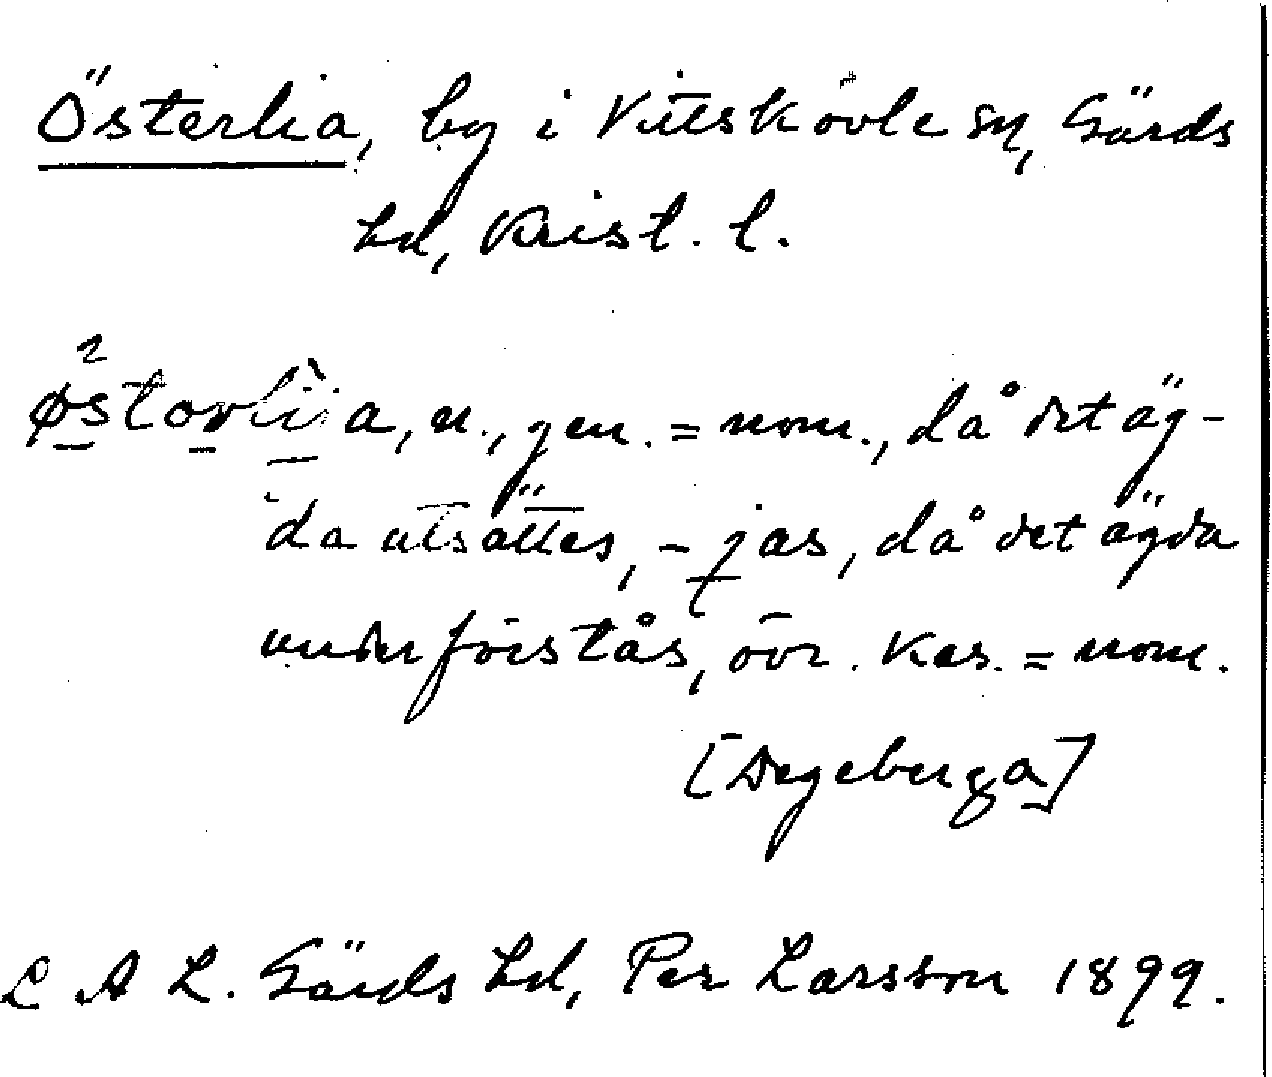 Österlia, by i Vittskövle sn, Gärds
hd, Krist. l.
østorlìja, n., gen. = nom., då det äg-
da utsättes, -jas, då det ägda
underförstås, övr. kas. = nom.
[Degeberga]
L A L. Gärds hd, Per Larsson 1899.